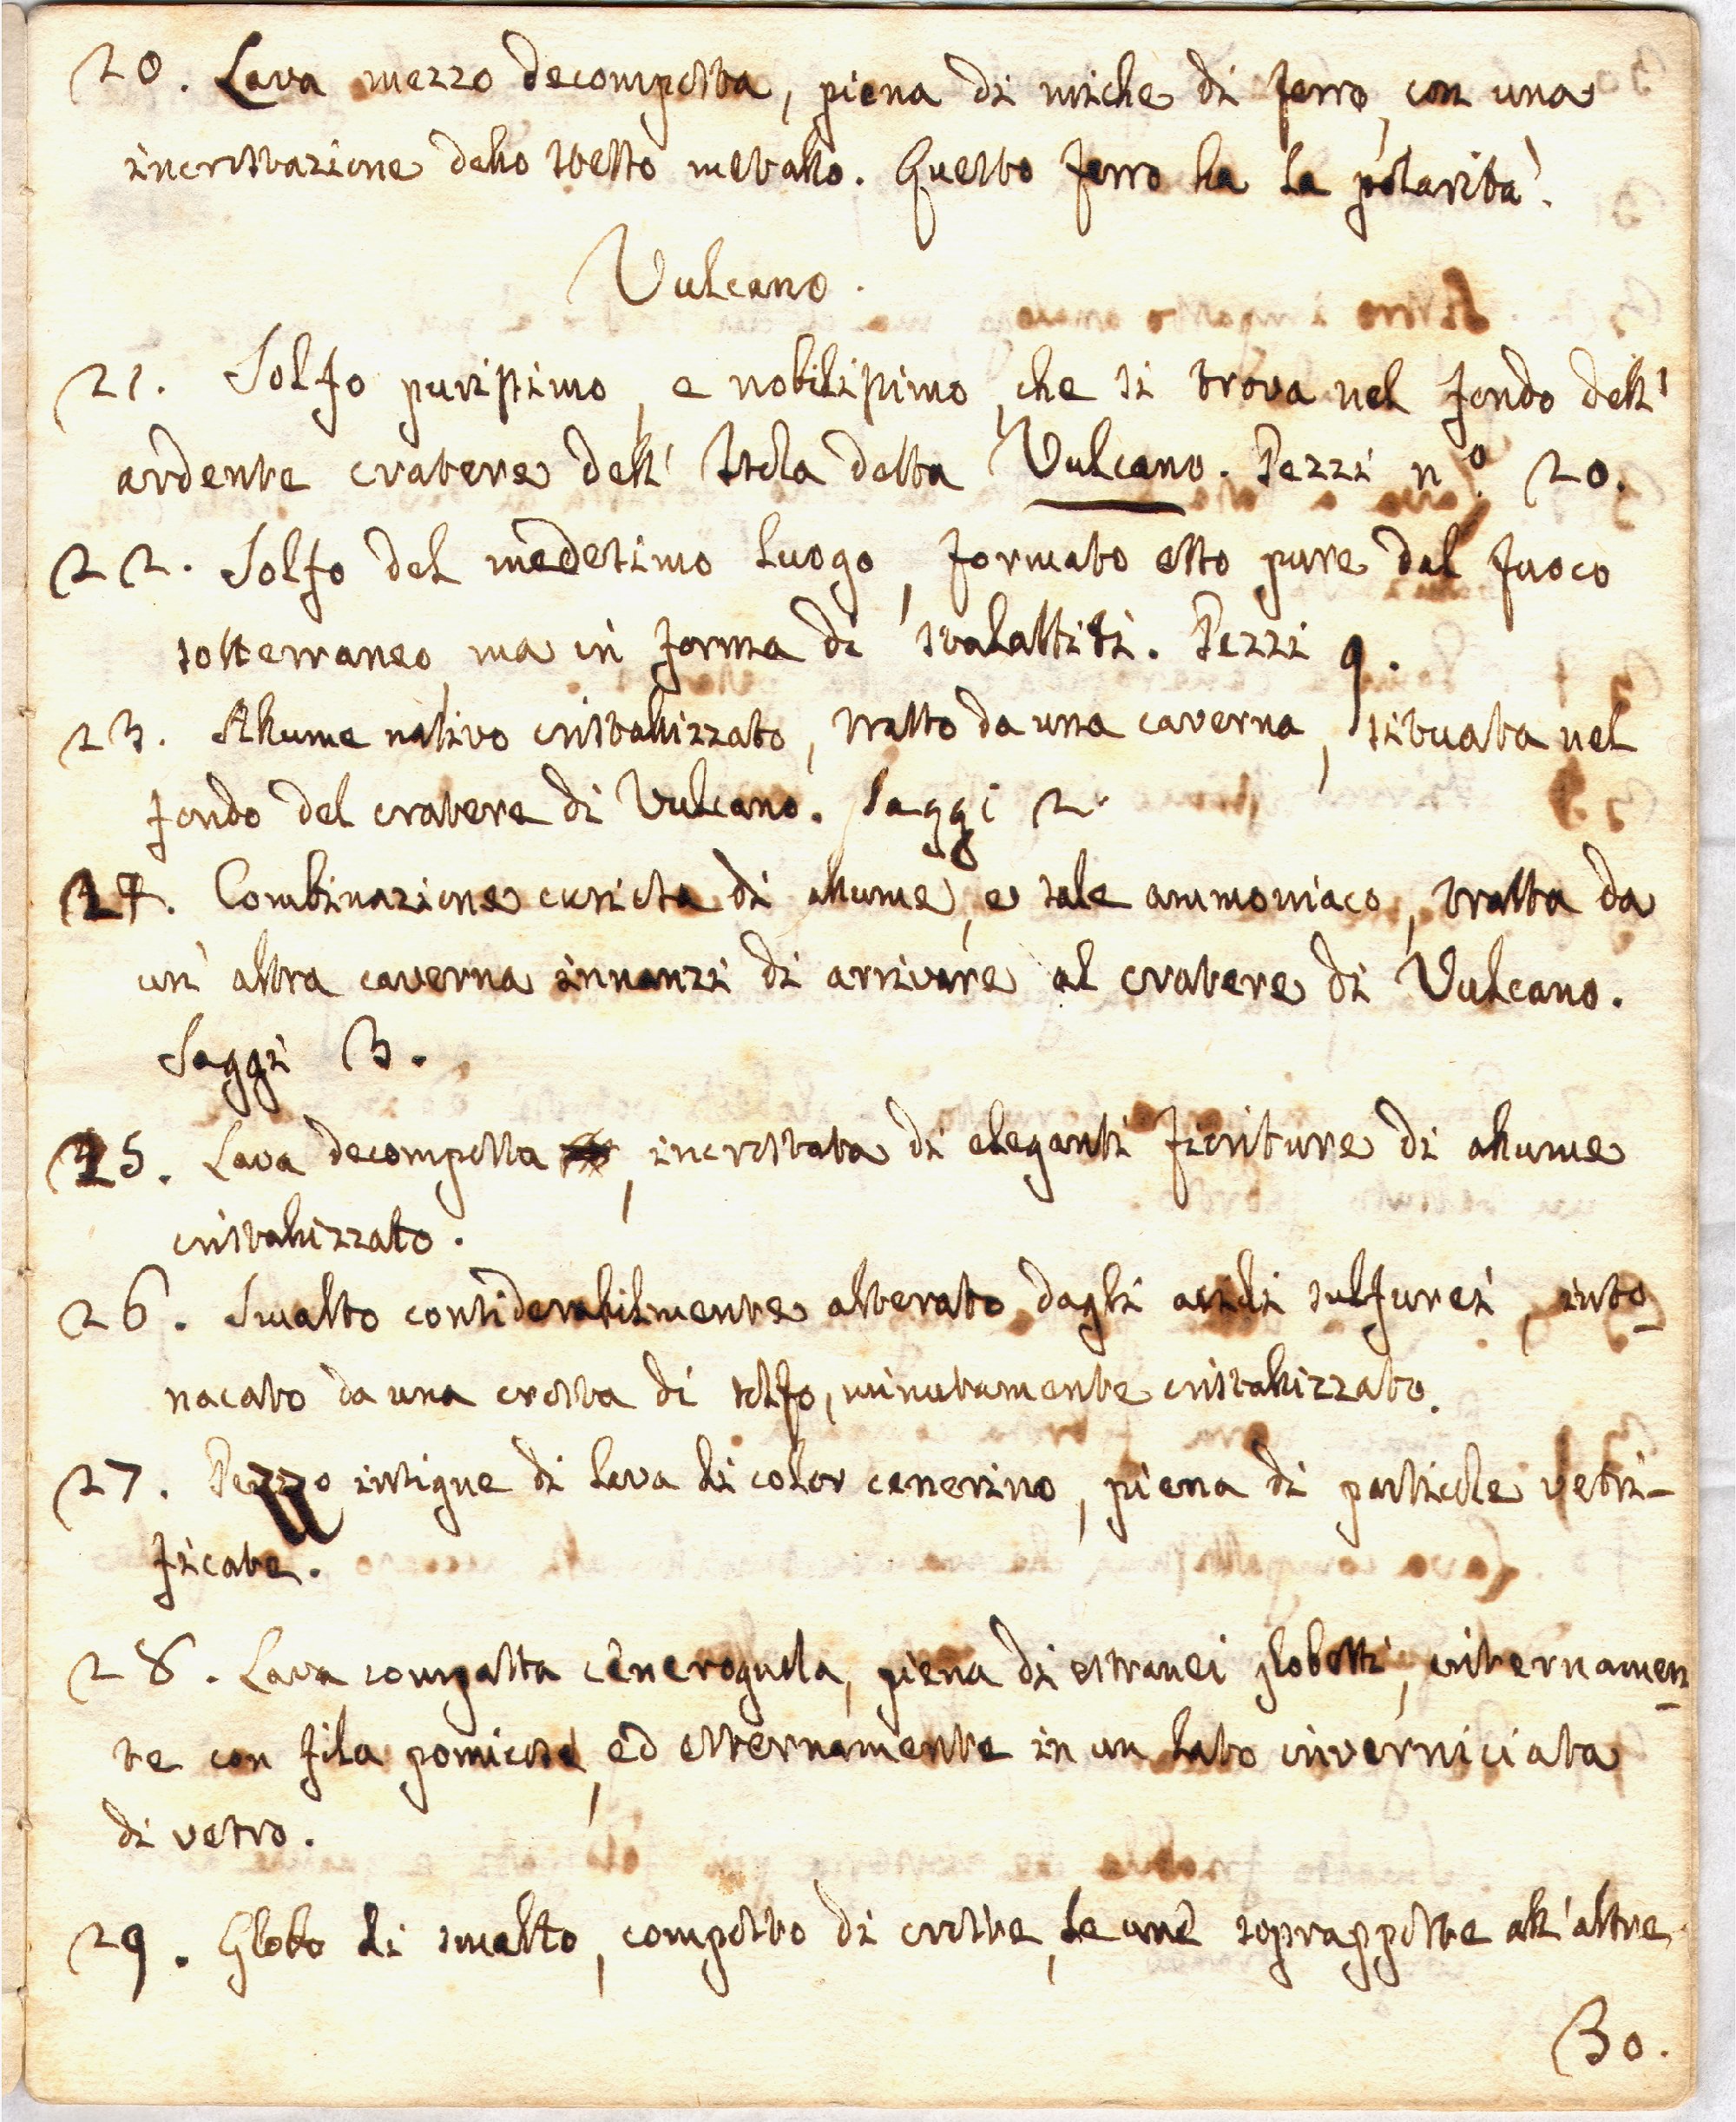 20. Lava mezzo decomposta, piena di miche di ferro, con una
incrostazione dello stesso metallo. Questo ferro ha la polarità.
Vulcano.
21. Solfo purissimo, e nobilissimo, che si trova nel fondo dell'
ardente cratere dell' Isola detta Vulcano. Pezzi n.º 20.
22. Solfo del medesimo luogo, formato esso pure dal fuoco
sotterraneo, ma in forma di stalattiti. Pezzi 9.
23. Allume nativo cristallizzato, tratto da una caverna, situata nel
fondo del cratere di Vulcano. Saggi 2.
24. Combinazione curiosa di allume, e sale ammoniaco, tratta da
un' altra caverna innanzi di arrivare al cratere di Vulcano.
Saggi 3.
25. Lava decomposta, incrostata di eleganti fioriture di allume
cristallizzato.
26. Smalto considerabilmente alterato dagli acidi sulfurei, into-
nacato da una crosta di solfo, minutamente cristallizzato.
27. Pezzo insigne di lava di color cenerino, piena di particole vetri-
ficate.
28. Lava compatta cenerognola, piena di estranei globetti, internamen-
te con fila pomicose, ed esternamente in un lato inverniciata
di vetro.
29. Globo di smalto, composto di croste, le une soprapposte all'altre.
30.